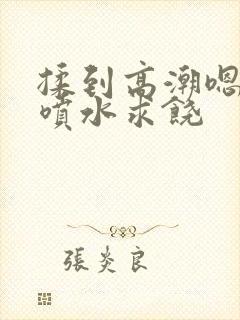 揉到高潮嗯
噴水求饒
張炎良